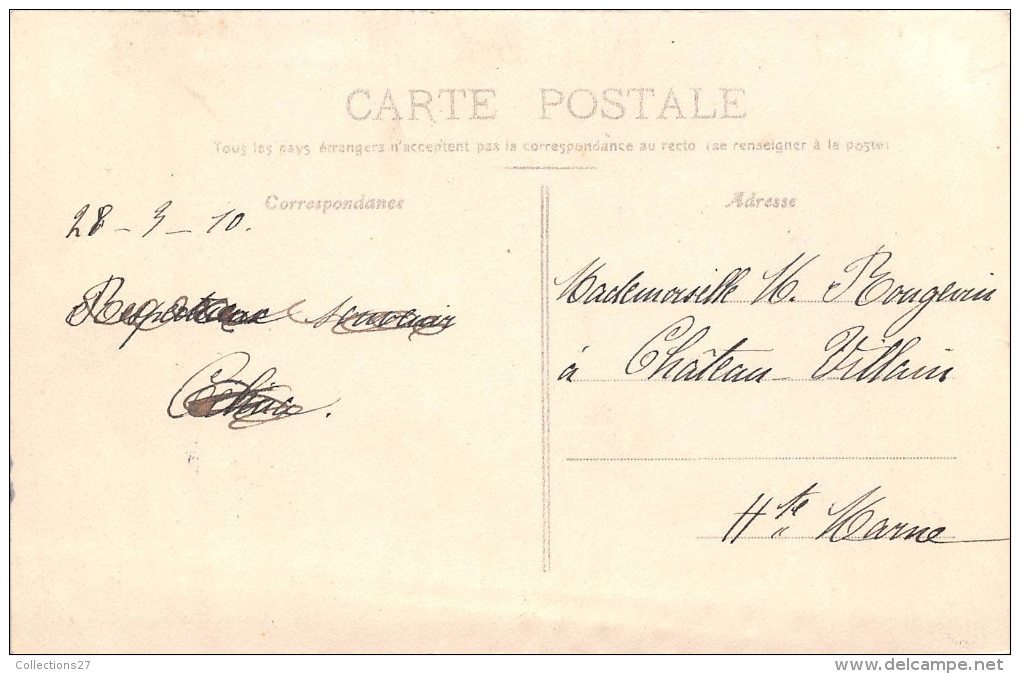 CARTE POSTALE
Tous les pays étrangers n'acceptent pas la correspondance au recto (se renseigner à la poste)
Correspondance
Adresse
28 - 3 - 10.
Respectueux souvenir
Mademoiselle M. Rougevin
à Château-Villain
Hte Marne
Collections27
www.delcampe.net